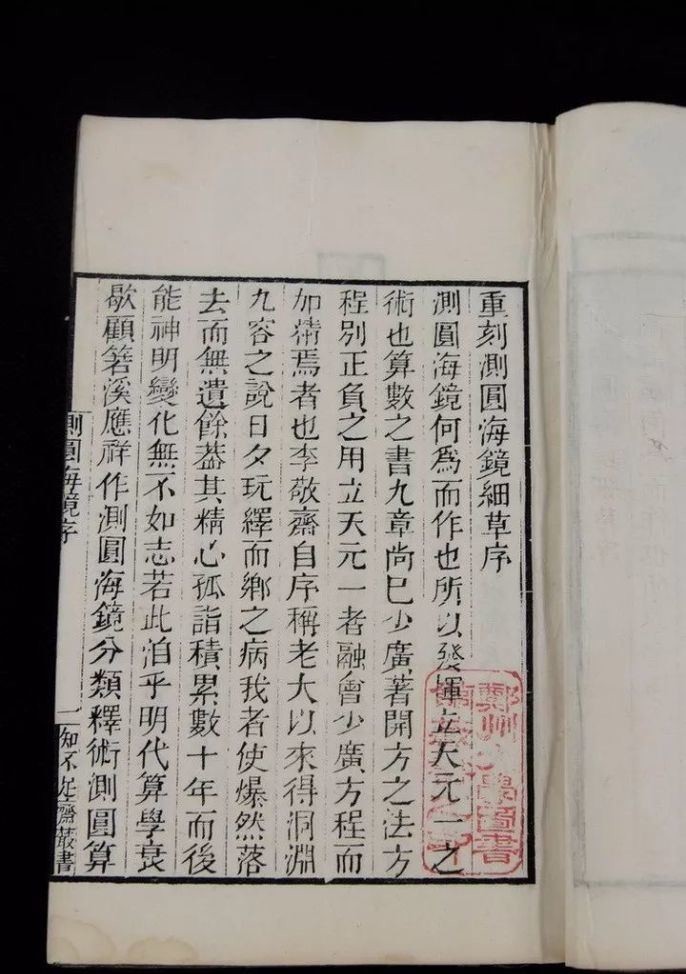 重刻測圓海鏡細草序
測圓海鏡何爲而作也所以發揮立天元一之
術也算數之書九章尚巳少廣著開方之法方
程別正負之用立天元一者融會少廣方程而
加精焉者也李敬齋自序稱老大以來得洞淵
九容之說日夕玩繹而鄉之病我者使爆然落
去而無遺餘葢其精心孤詣積累數十年而後
能神明變化無不如志若此洎乎明代算學衰
歇顧箬溪應祥作測圓海鏡分類釋術測圓算
測圓海鏡序
一
知不足齋叢書